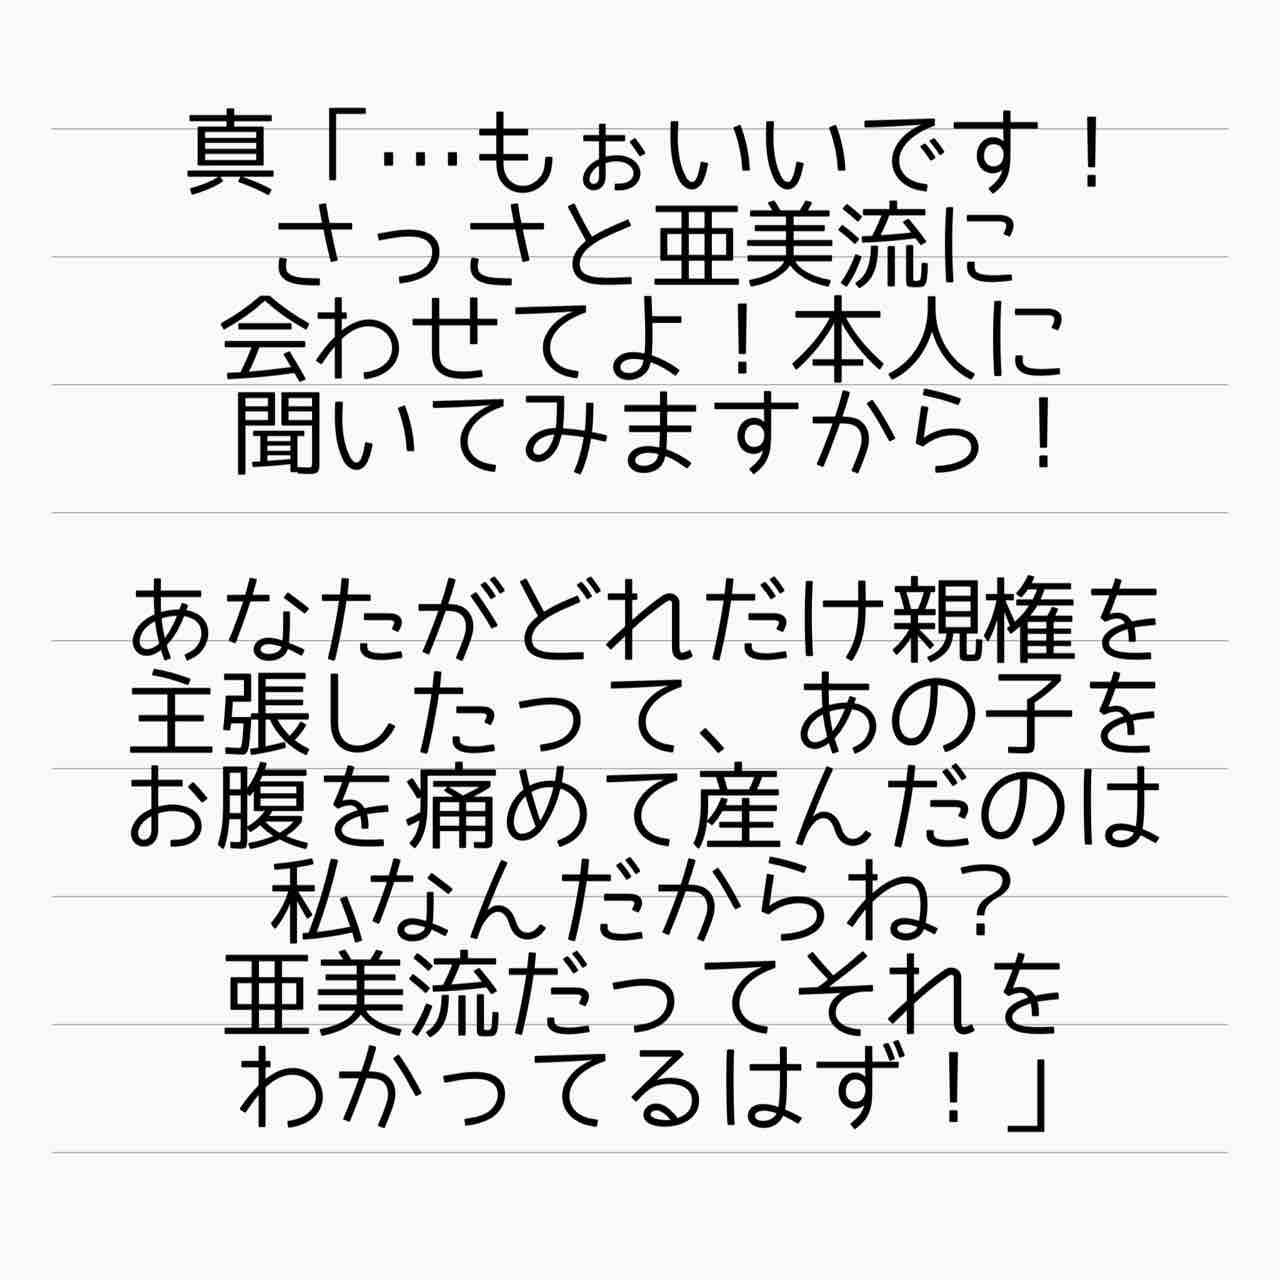 真「…もぉいいです！
さっさと亜美流に
会わせてよ！本人に
聞いてみますから！
あなたがどれだけ親権を
主張したって、あの子を
お腹を痛めて産んだのは
私なんだからね？
亜美流だってそれを
わかってるはず！」